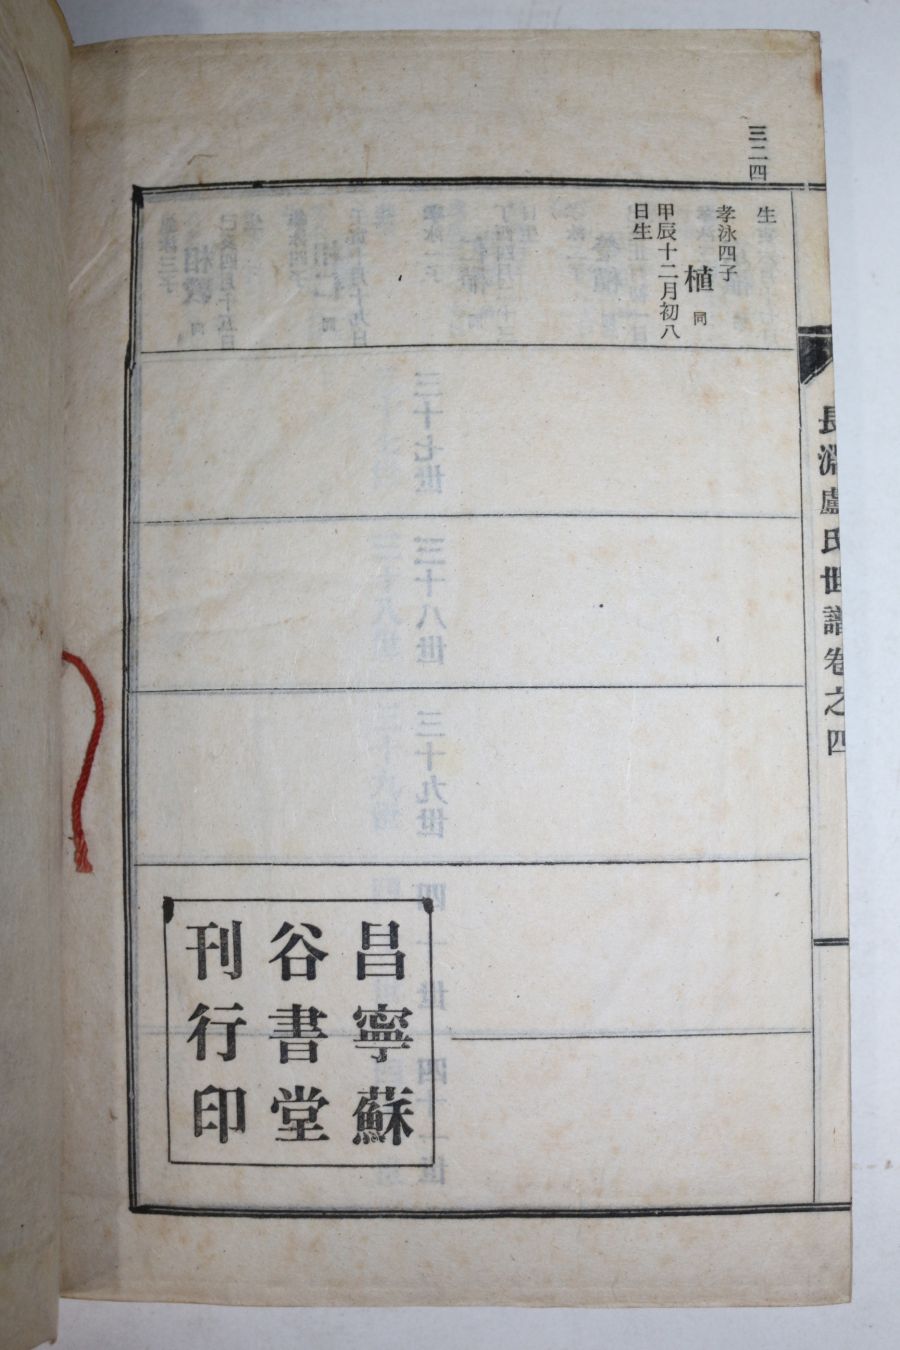 三二四
長淵盧氏世譜卷之四
生
孝泳四子
植 同
甲辰十二月初八
日生
昌寧蘇
谷書堂
刊行印